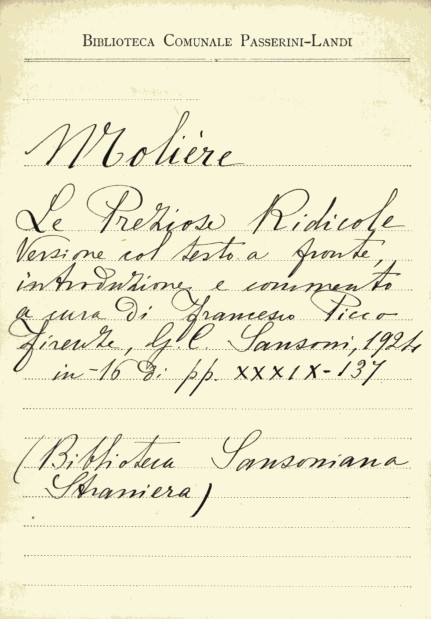 BIBLIOTECA COMUNALE PASSERINI-LANDI
Molière
Le Preziose Ridicole
Versione col testo a fronte,
introduzione e commento
a cura di Francesco Picco
Firenze, G. C. Sansoni, 1924
in-16 di pp. XXXIX-137
(Biblioteca Sansoniana
Straniera)